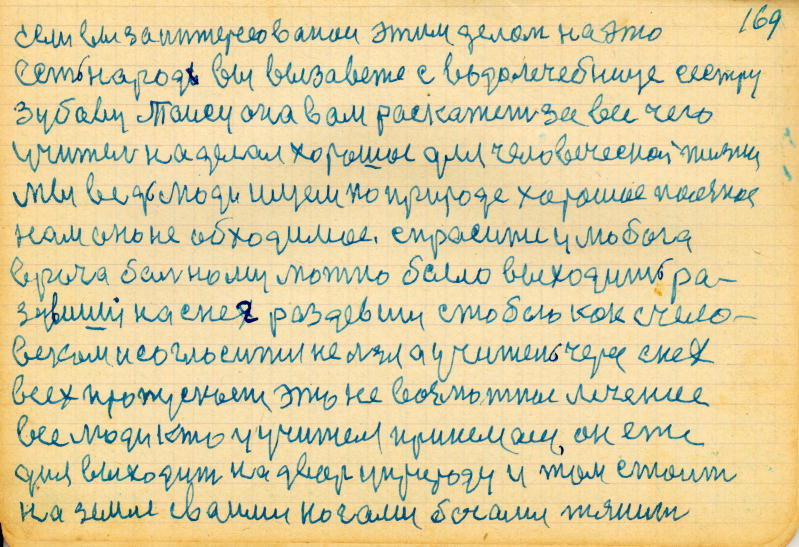 169
если вы заинтересованои этим делом на это
есть народ вы вызавете с водолечебнице сестру
Зубаву Таису она вам расскажет за все чего
учител наделал хорошое для человеческой жизни
мы ведь люди ищем по природе хорошое полезное
нам оно не обходимое. спрасити у любога
врача болному можно было выходить ра-
зувший на снег раздевши стобою как счело-
веком и согласитти нелзя а учитель через снех
всех пропускает это не возможное лечение
все люди кто у учителя принемает он еже
дня выходит на двор уприроду и там стоит
на земле сваими ногами босами тянит